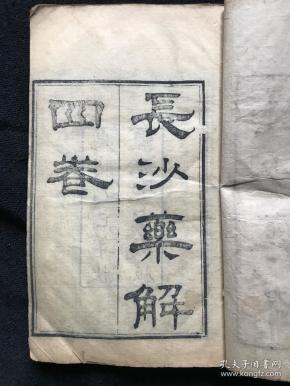 長沙藥解
四卷
孔夫子旧书网